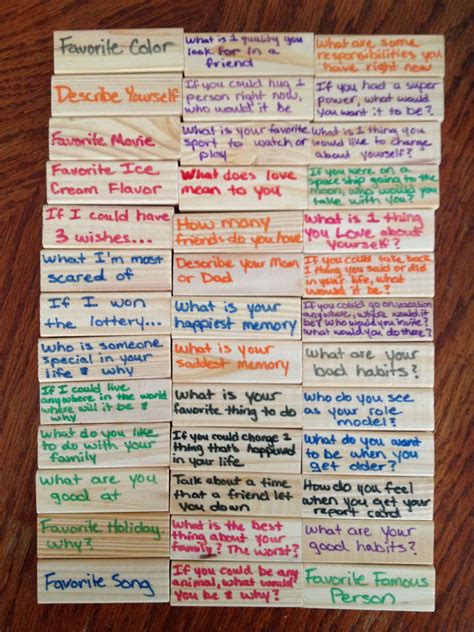 Favorite Color
What is 1 quality you
look for in a
friend
What are some
responsibilities you
have right now
Describe Yourself
If you could hug 1
person right now,
who would it be
If you had a super
power, what would
you want it to be?
Favorite Movie
What is your favorite
sport to watch or
play
What is 1 thing you
would like to change
about yourself?
Favorite Ice
Cream Flavor
What does love
mean to you
If you were on a
space ship going to the
moon, who would you
take with you?
If I could have
3 wishes...
How many
friends do you have
What is 1 thing
you Love about
yourself?
What I'm most
scared of
Describe your Mom
or Dad
If you could take back
1 thing you said or did
in your life, what
would it be?
If I won
the lottery...
What is your
happiest memory
If you could go on vacation
anywhere, where would it
be? Who would you invite?
What would you do there?
Who is someone
special in your
life & why
What is your
saddest memory
What are your
bad habits?
If I could live
anywhere in the world
where will it be &
why
What is your
favorite thing to do
Who do you see
as your role
model?
What do you like
to do with your
family
If you could change 1
thing that's happened
in your life
What do you want
to be when you
get older?
What are you
good at
Talk about a time
that a friend let
you down
How do you feel
when you get your
report card
Favorite Holiday.
Why?
What is the best
thing about your
family? The worst?
What are your
good habits?
Favorite Song
If you could be any
animal, what would
you be & why?
Favorite Famous
Person